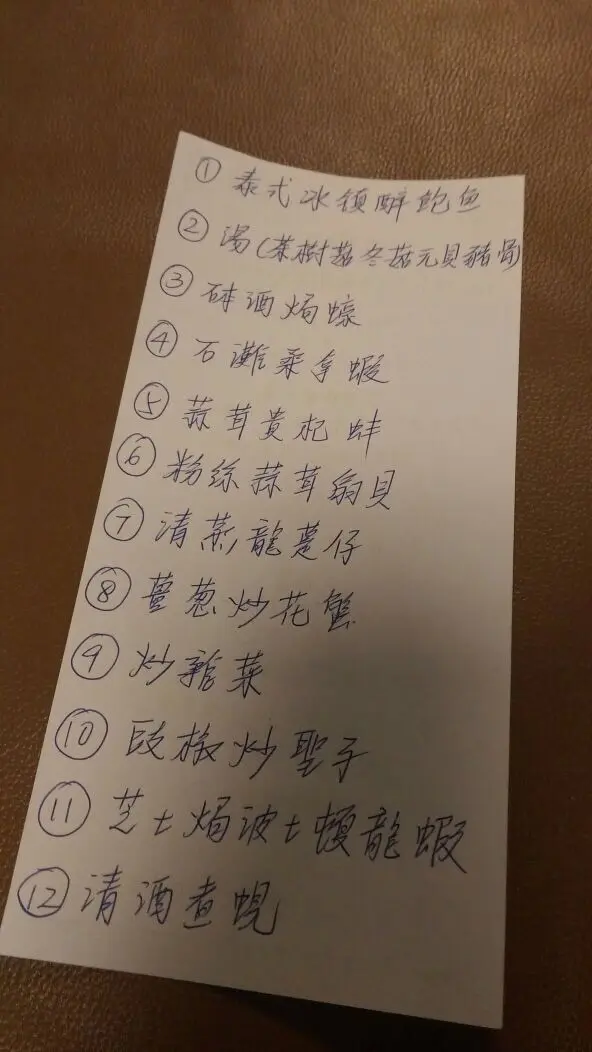 ① 泰式冰镇醉鲍鱼
② 湯(茶樹菇冬菇元貝豬骨)
③ 砵酒焗蠔
④ 石灘桑拿蝦
⑤ 蒜茸貴妃蚌
⑥ 粉絲蒜茸扇貝
⑦ 清蒸龍躉仔
⑧ 薑葱炒花蟹
⑨ 炒雜菜
⑩ 豉椒炒聖子
⑪ 芝士焗波士頓龍蝦
⑫ 清酒煮蜆